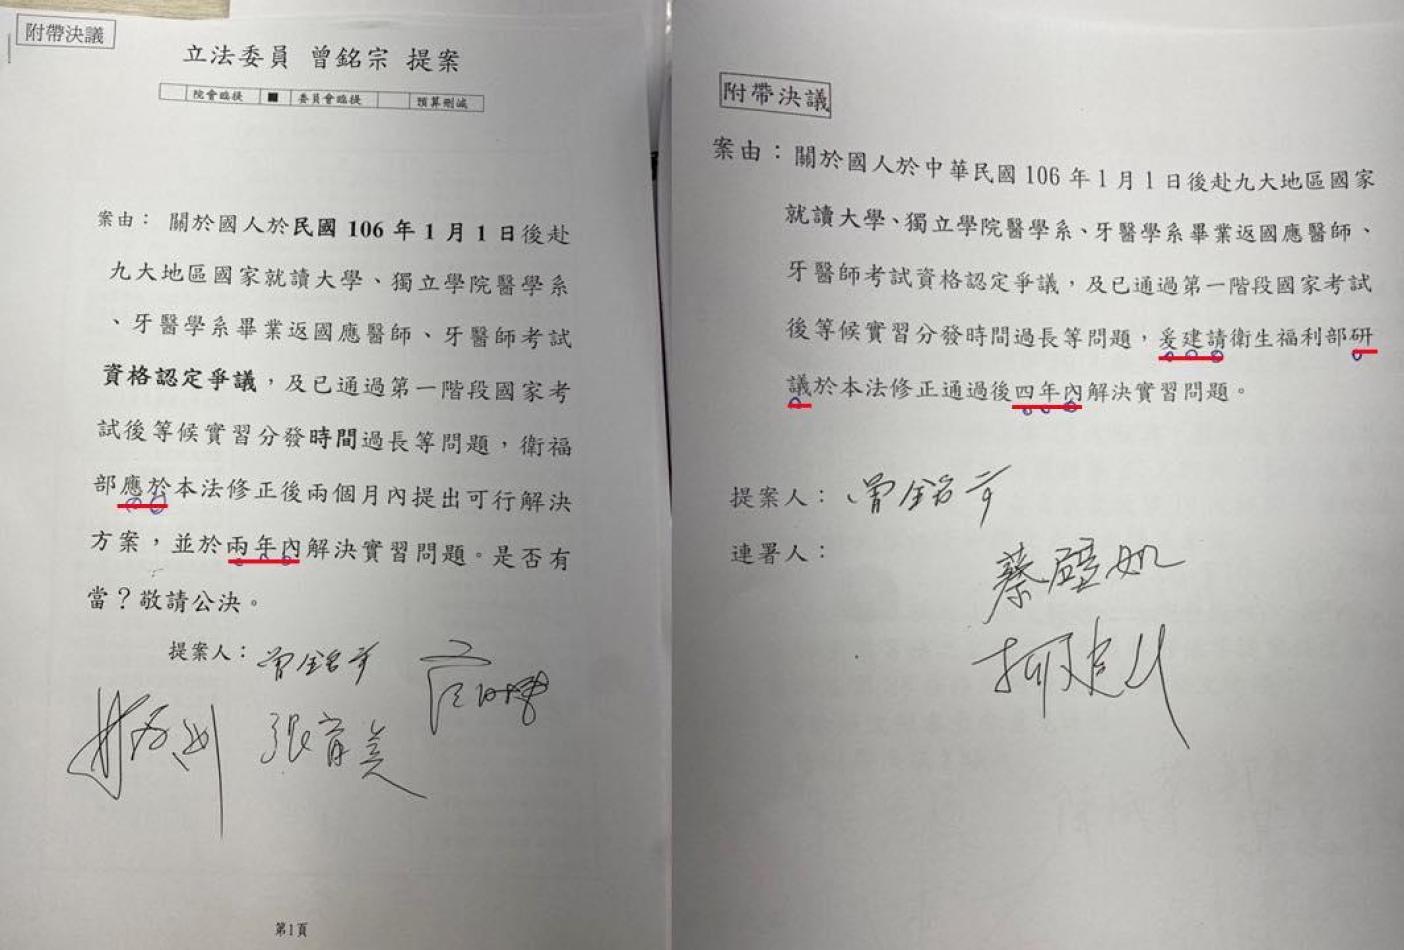 附帶決議
立法委員 曾銘宗 提案
院會臨提 ■ 委員會臨提 預算刪減
案由：關於國人於民國 106 年 1 月 1 日後赴
九大地區國家就讀大學、獨立學院醫學系
、牙醫學系畢業返國應醫師、牙醫師考試
資格認定爭議，及已通過第一階段國家考
試後等候實習分發時間過長等問題，衛福
部應於本法修正後兩個月內提出可行解決
方案，並於兩年內解決實習問題。是否有
當？敬請公決。
提案人：曾銘宗
張育美
第1頁
附帶決議
案由：關於國人於中華民國 106 年 1 月 1 日後赴九大地區國家
就讀大學、獨立學院醫學系、牙醫學系畢業返國應醫師、
牙醫師考試資格認定爭議，及已通過第一階段國家考試
後等候實習分發時間過長等問題，爰建請衛生福利部研
議於本法修正通過後四年內解決實習問題。
提案人：曾銘宗
連署人：
蔡壁如
柯建銘